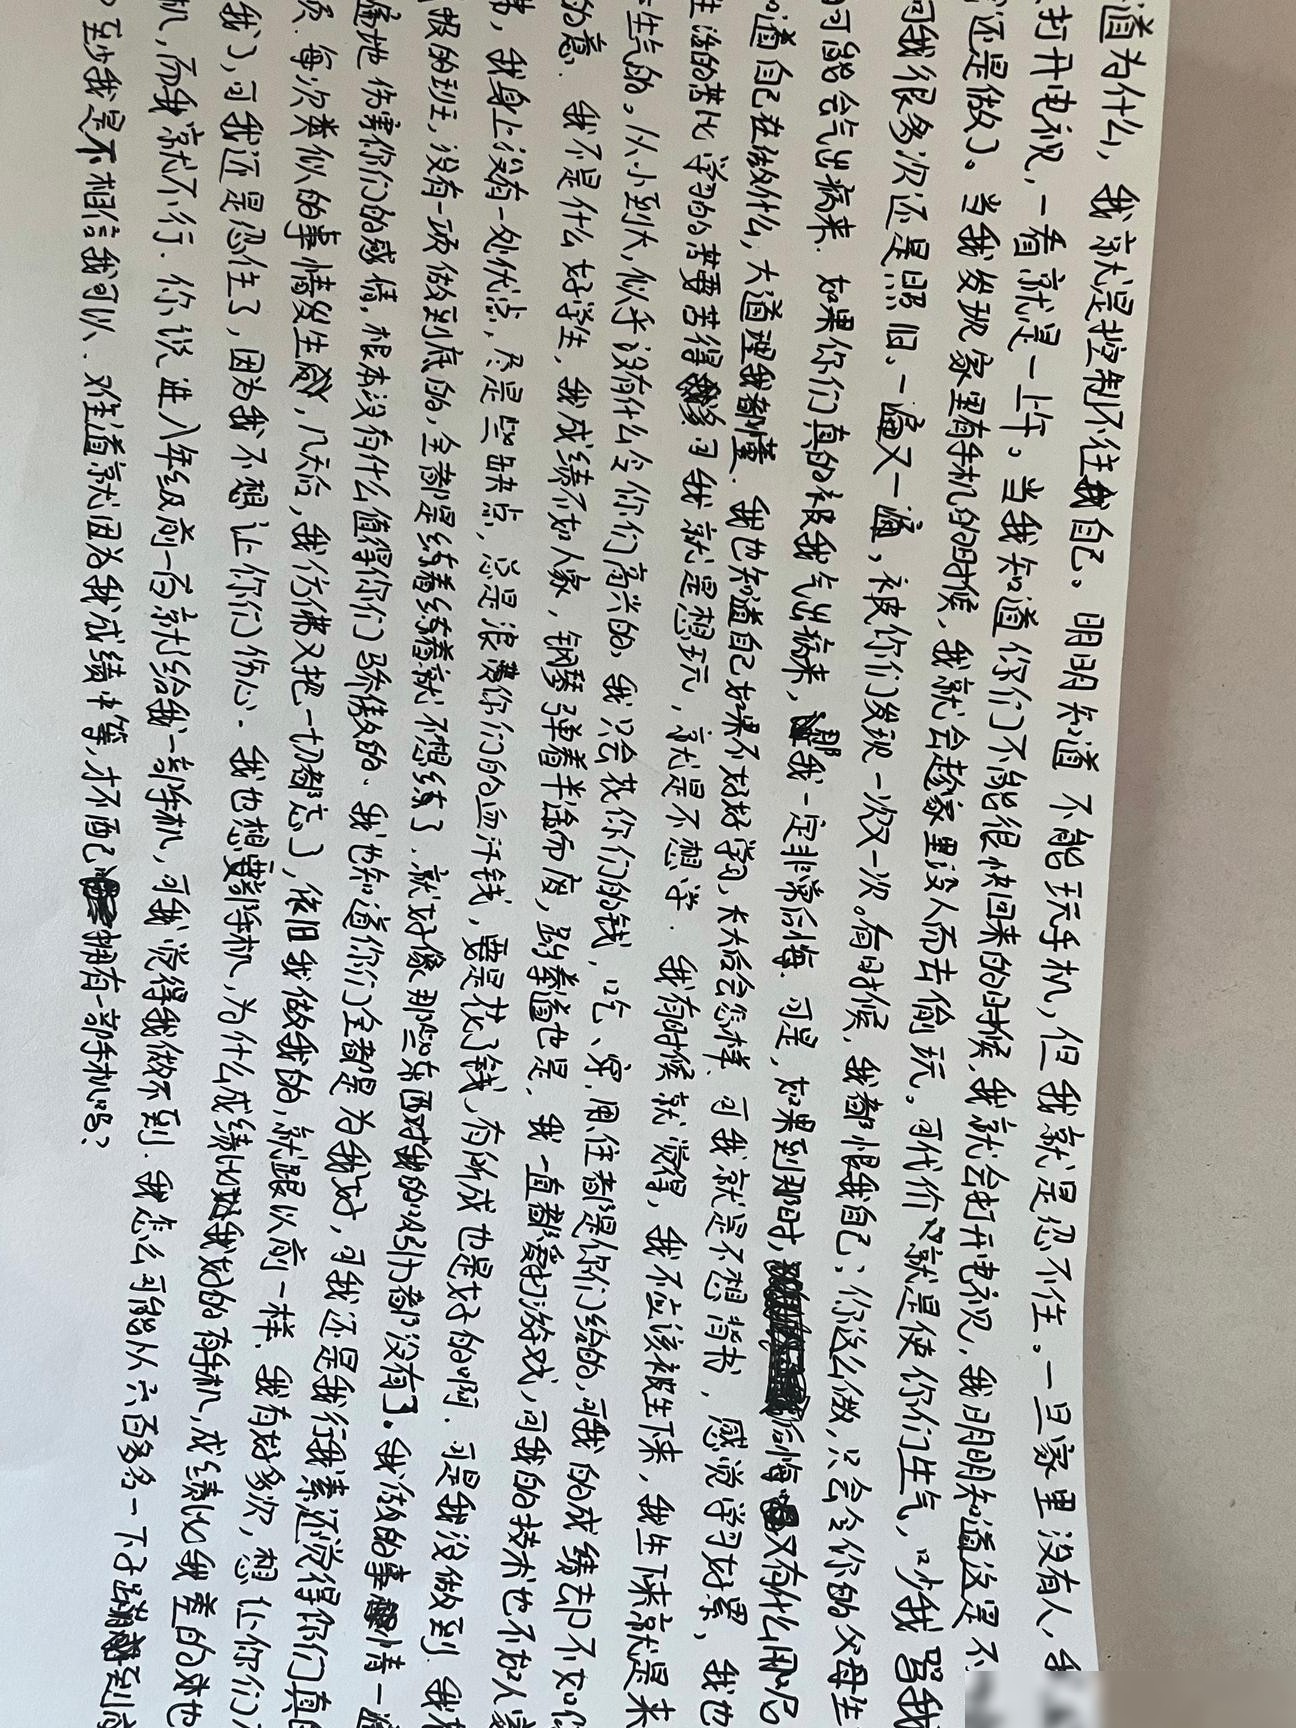 道为什么，我就是控制不住我自己。明明知道不能玩手机，但我就是忍不住。一旦家里没有人，我
打开电视，一看就是一上午。当我知道你们不能很快回来的时候，我就会打开电视，我明明知道这是不
还是做了。当我发现家里有手机的时候，我就会趁家里没人而去偷玩。可代价就是使你们生气，吵我骂我
问我很多次还是照旧、一遍又一遍，被你们发现一次又一次。有时候，我都恨我自己：你这么做，只会令你的父母生
可能会气出病来．如果你们真的被我气出病来，那我一定非常后悔．可是，如果到那时，后悔又有什么用呢
道自己在做什么，大道理我都懂．我也知道自己如果不好好学习，长大后会怎样．可我就是不想背书，感觉学习好累，我也
生活的苦比学习的苦要苦得多可我就是想玩，就是不想学．我有时候就觉得，我不应该被生下来，我生下来就是来
生气的。从小到大，似乎没有什么令你们高兴的，我只会花你们的钱，吃、穿、用、住都是你们给的，可我的成绩却不如你
的意．我不是什么好学生，我成绩不如人家，钢琴弹着半途而废，跆拳道也是．我一直都爱打游戏，可我的技术也不如人家
我身上没有一处优点，尽是些缺点，总是浪费你们的血汗钱，要是花了钱，有所成也是好的啊．可是我没做到．我
报的班，没有一项做到底的，全都是练着练着就不想练了．就好像那些东西对我的吸引力都没有了。我做的事情一遍
遍地伤害你们的感情，根本没有什么值得你们骄傲的、我也知道你们全都是为我好，可我还是我行我素还觉得你们真的
烦．每次类似的事情发生后，几天后，我仿佛又把一切都忘了，依旧我做我的，就跟以前一样．我有好多次，想让你们
我了，可我还是忍住了，因为我不想让你们伤心．我也想要部手机，为什么成绩比我好的有手机，成绩比我差的也
机，而我就不行．你说进八年级前一百就给我一部手机，可我觉得我做不到．我怎么可能从六百多名一下子到前
至少我是不相信我可以．难道就因为我成绩中等，才不配拥有一部手机吗？